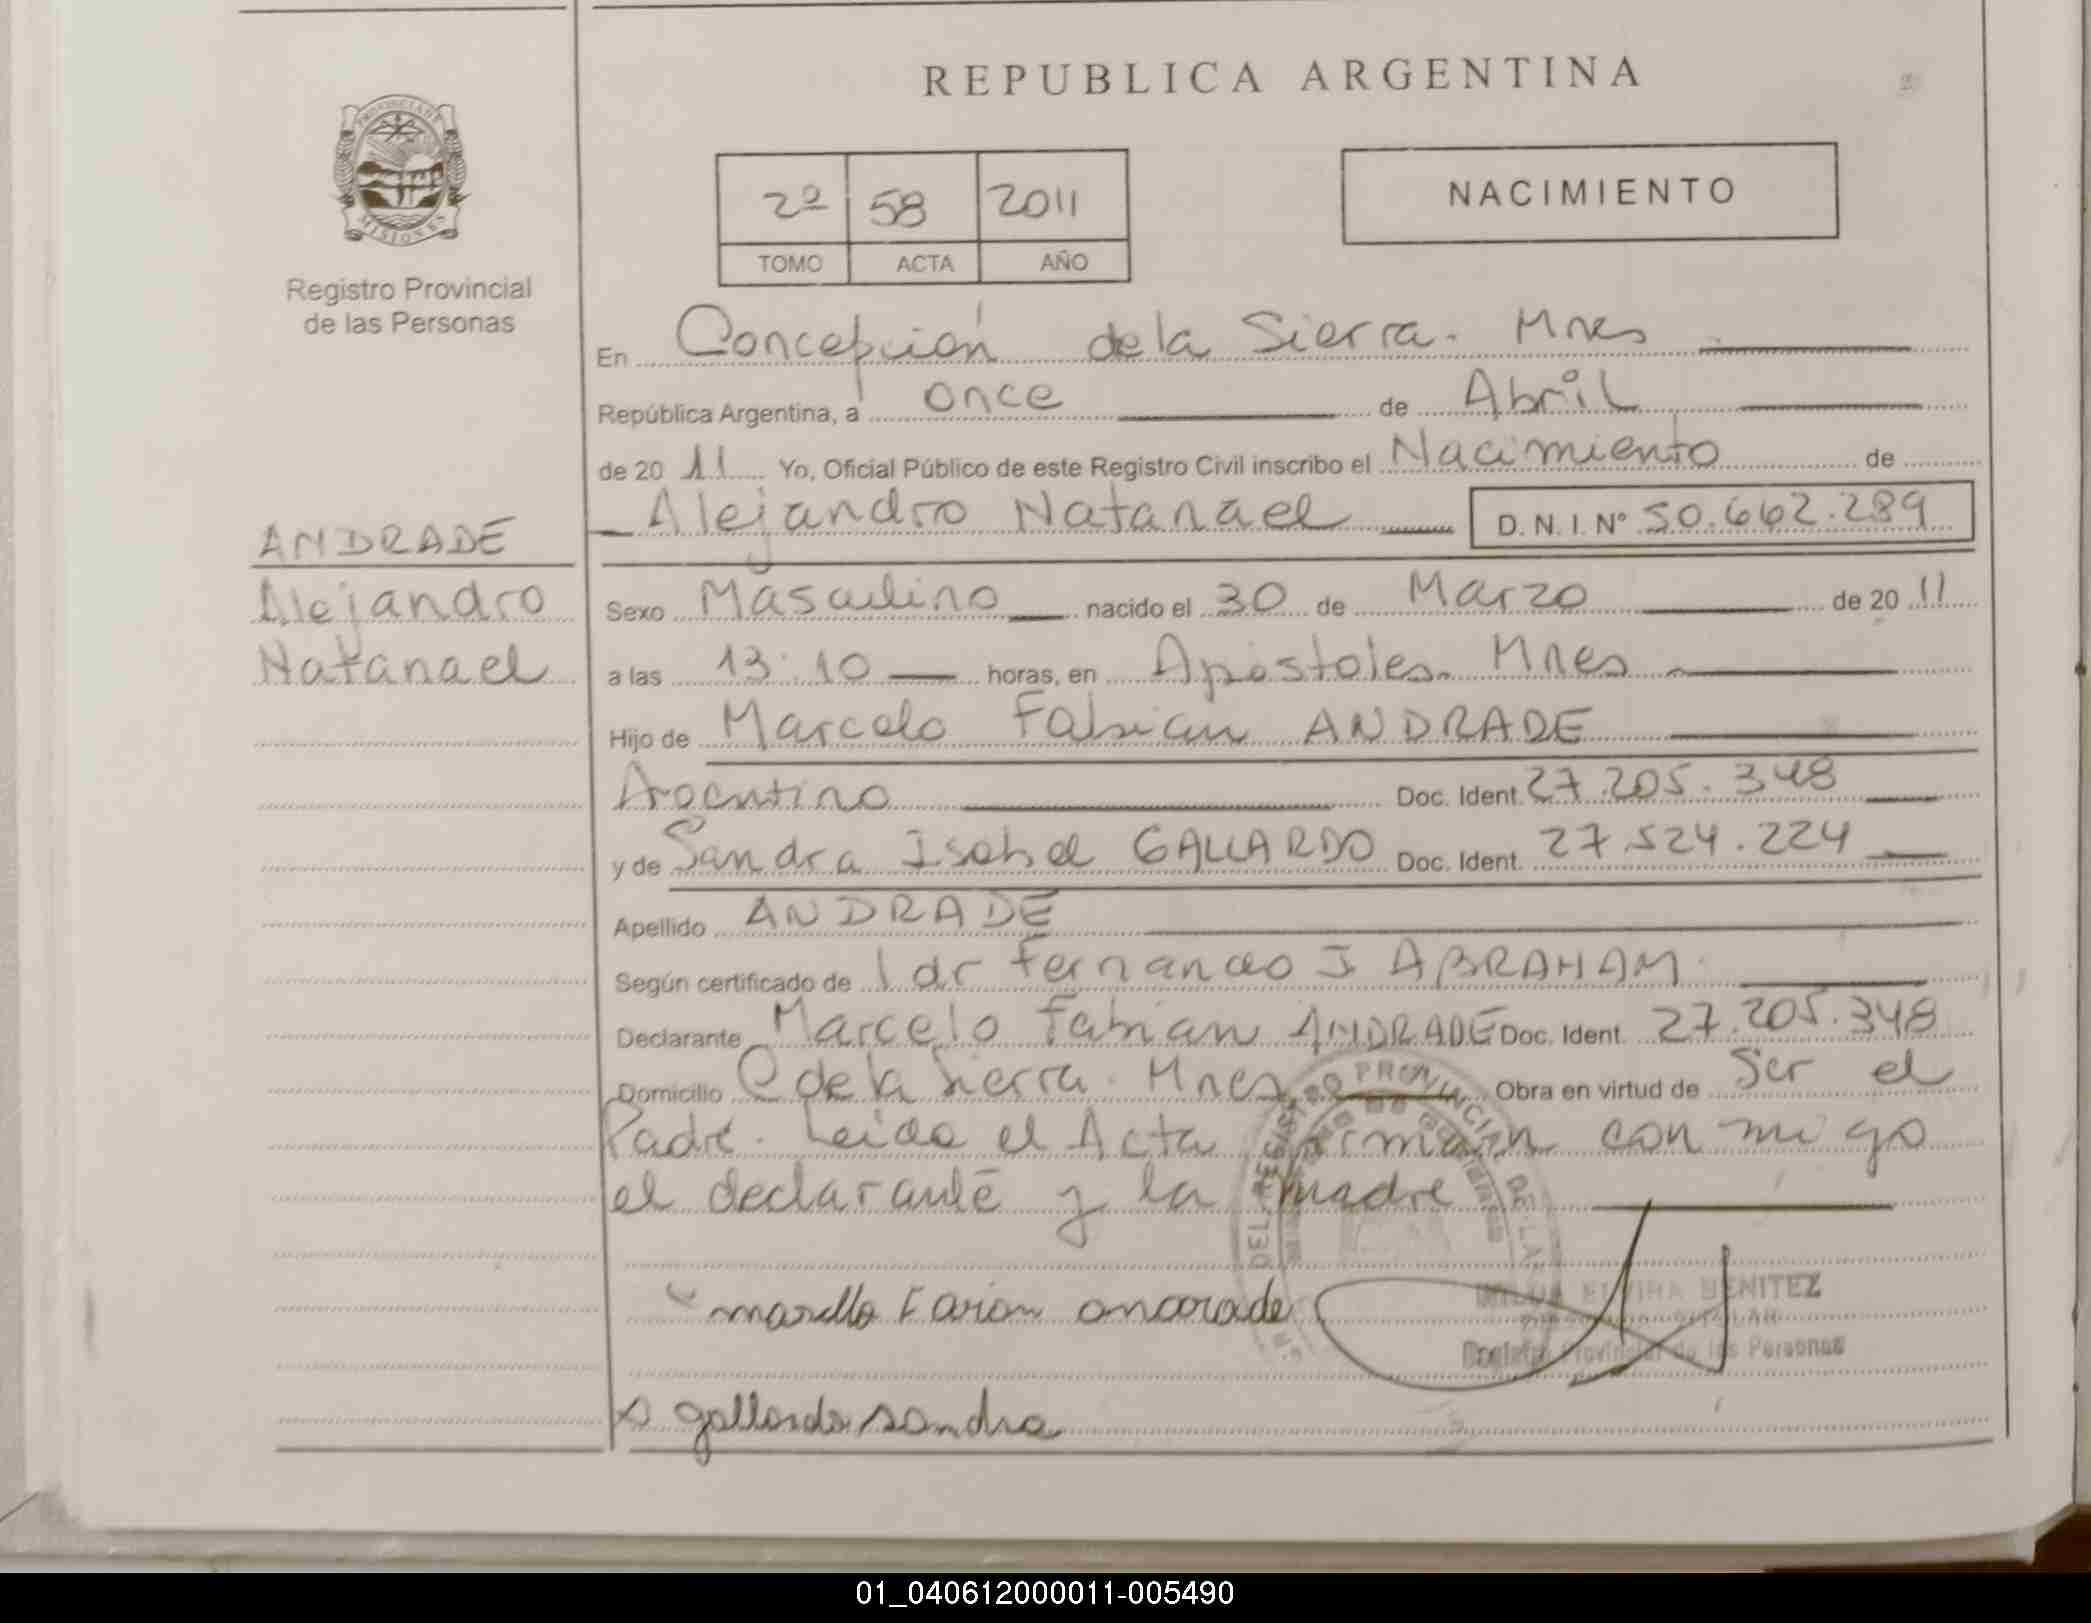 REPUBLICA ARGENTINA
PROVINCIA DE
MISIONES
Registro Provincial
de las Personas
2º 58 2011
TOMO ACTA AÑO
NACIMIENTO
En Concepción de la Sierra. Mnes
República Argentina, a once de Abril
de 2011 Yo, Oficial Público de este Registro Civil inscribo el Nacimiento de
Alejandro Natanael D. N. I. Nº 50.662.289
ANDRADE
Alejandro
Natanael
Sexo Masculino nacido el 30 de Marzo de 2011
a las 13:10 horas, en Apóstoles. Mnes
Hijo de Marcelo Fabian ANDRADE
Argentino Doc. Ident. 27.205.348
y de Sandra Isabel GALLARDO Doc. Ident. 27.524.224
Apellido ANDRADE
Según certificado de l dr Fernando J ABRAHAM.
Declarante Marcelo Fabian ANDRADE Doc. Ident. 27.205.348
Domicilio C de la Sierra. Mnes Obra en virtud de Ser el
Padre. Leida el Acta firman con migo
el declarante y la madre
DEL REGISTRO PROVINCIAL DE LAS
ELVIRA BENITEZ
TITULAR
Registro Provincial de las Personas
marcelo Fabian andrade
gallardo sandra
01_040612000011-005490